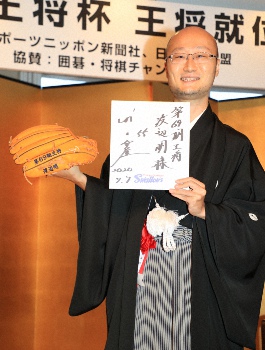 王将杯 王将就位
ポーツニッポン新聞社、日
盟
協賛：囲碁・将棋チャン
第69期王将
渡辺明様
2020
7.7
Swallows
第69期王将
渡辺明